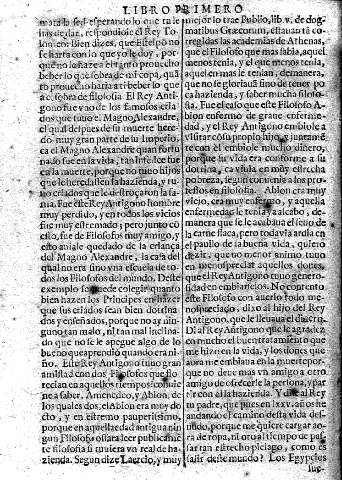 LIBRO PRIMERO
mata la sed esperando lo que tu le
has de dar, respondiole el Rey To
lomeo: Bien dizes, que Esfepo no se
harta con lo que yo le doy, por
que no le hazes el algun prouecho
beber lo que sobra de mi copa, quã
to prouecho haria a ti beber lo que
a el sobra de filosofia. El Rey Anti-
gono fue vno de los famosos criados
que tuuo el Magno Alexandre,
el qual despues de su muerte here-
do muy gran parte de su Imperio.
ca el Magno Alexandre quan fortu
nado fue en la vida, tan infelice fue
en la muerte, porque no tuuo hijos
que le heredassen la hazienda, y tu-
uo criados que le destroçaron la fa-
ma. Fue este Rey Antigono hombre
muy perdido, y en todos los vicios
fue muy estremado, pero junto cõ
esto, fue de Filosofos muy amigo, y
esto auiale quedado de la criança
del Magno Alexandre, la casa del
qual no era sino vna escuela de to-
dos los Filosofos del mundo. Deste
exemplo se puede colegir quanto
bien hazen los Principes en hazer
que sus criados sean bien dotrina-
dos y enseñados, porque no ay nin-
guno tan malo, ni tan mal inclina-
do que no se le apegue algo de lo
bueno que aprendio quando era ni-
ño. Este Rey Antigono tuuo gran
amistad con dos Filosofos que flo-
recian en aquellos tiempos conuie-
ne a saber, Amenedico, y Abion, de
los quales dos, el Abion era muy do
cto, y en estremo pauperissimo,
porque en aquella edad antigua nin
gun Filosofo osara leer publicamẽ
te filosofia si tuuiera vn real de ha-
zienda. Segun dize Laercio, y muy
mejor lo trae Publio, lib. v. de dog-
matibus Græcorum, estauan tã co-
rregidas las academias de Athenas,
que el Filosofo que mas sabia, aquel
menos tenia, y el que menos tenia,
aquel en mas le tenian, de manera,
que no se gloriauã sino de tener po
ca hazienda, y saber mucha filoso-
fia. Fue el caso que este Filosofo A-
bion enfermo de graue enferme-
dad, y el Rey Antigono embiole a
visitar cõ su proprio hijo, y juntamẽ
te con el embiole mucho dinero,
porque su vida era conforme a su
dotrina, ca viuia en muy estrecha
pobreza, segun conuiene a los pro-
fessos en filosofia. Abion era muy
viejo, era muy enfermo, y aquella
enfermedad le tenia ya al cabo, de
manera que se le acabaua el seso de
la carne flaca, pero todavia ardia en
el pauilo de la buena vida, quiero
dezir, que no menor animo tuuo
en menospreciar aquellos dones,
que el Rey Antigono tuuo genero-
sidad en embiarselos. No contento
este Filosofo con auerlo todo me-
nospreciado, dixo al hijo del Rey
Antigono, que le lleuaua el dinero:
Di al Rey Antigono que le agradez
co mucho el buen tratamiento que
me hizo en la vida, y los dones que
aora me embiaua en la muerte, por-
que no deue mas vn amigo a otro
amigo de ofrecerle la persona, y par
tir con el la hazienda. Y dile al Rey
tu padre, que pues en lxxx. años he
andando el camino desta vida des-
nudo, porque me quiere cargar aora
de ropa, ni oro al tiempo de pas-
sar tan estrecho pielago, como es
salir deste mundo? Los Egypcios